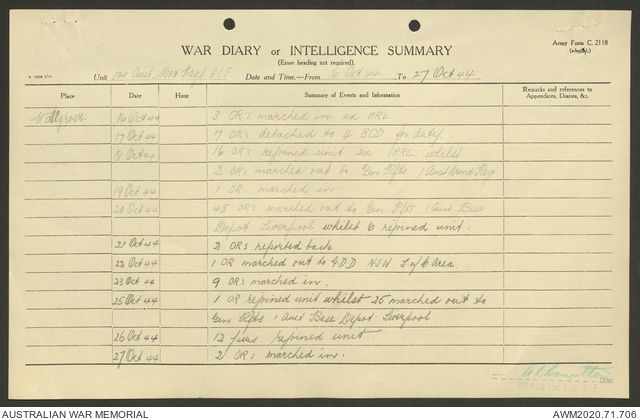 Army Form C. 2118
(adapted).
WAR DIARY or INTELLIGENCE SUMMARY
(Erase heading not required).
Unit Aust Mot Regt AIF Date and Time.—From 16 Oct 44 To 27 Oct 44.
Place Date Hour Summary of Events and Information Remarks and references to Appendices, Diaries, &c.
Wallgrove. 16 Oct 44 3 ORs marched in ex ARL
17 Oct 44 7 ORs detached to 4 BOD for duty
18 Oct 44 16 ORs rejoined unit ex ARL whilst
2 ORs marched out to Gen Rfts 1 Aust Armd Regt
19 Oct 44 1 OR marched in
20 Oct 44 45 ORs marched out to Gen Rfts 1 Aust Base
Depot Liverpool whilst 6 rejoined unit.
21 Oct 44 2 ORs reported back
22 Oct 44 1 OR marched out to GDD NSW L of C Area.
23 Oct 44 9 ORs marched in.
25 Oct 44 1 OR rejoined unit whilst 25 marched out to
Gen Rfts 1 Aust Base Depot Liverpool
26 Oct 44 12 pers rejoined unit.
27 Oct 44 2 ORs marched in.
AUSTRALIAN WAR MEMORIAL
AWM2020.71.706